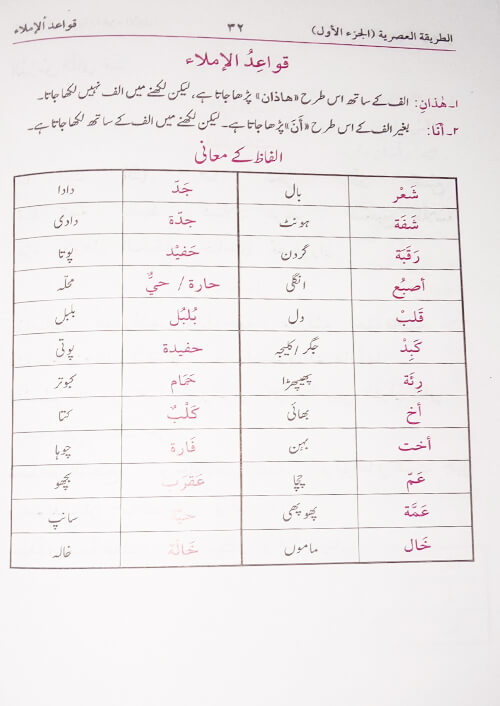 الطريقة العصرية (الجزء الأول) ٣٢ قواعد الإملاء
قواعِدُ الإملاء
١۔ هٰذانِ: الف کے ساتھ اس طرح «هاذان» پڑھا جاتا ہے، لیکن لکھنے میں الف نہیں لکھا جاتا۔
٢۔ أنَا: بغیر الف کے اس طرح «أَنَ» پڑھا جاتا ہے۔ لیکن لکھنے میں الف کے ساتھ لکھا جاتا ہے۔
الفاظ کے معانی
شَعْر بال جَدّ دادا
شَفَة ہونٹ جدّة دادی
رَقَبَة گردن حَفيْد پوتا
أصبُع انگلی حارة / حيٌّ محلّہ
قَلبْ دل بُلبُل بلبل
كَبِدْ جگر/کلیجہ حفيدة پوتی
رِئَة پھیپھڑا حَمَام کبوتر
أخ بھائی كَلْبٌ کتا
أخت بہن فَارة چوہا
عَمّ چچا عَقرَب بچھو
عَمَّة پھوپھی حيّة سانپ
خَال ماموں خَالَة خالہ